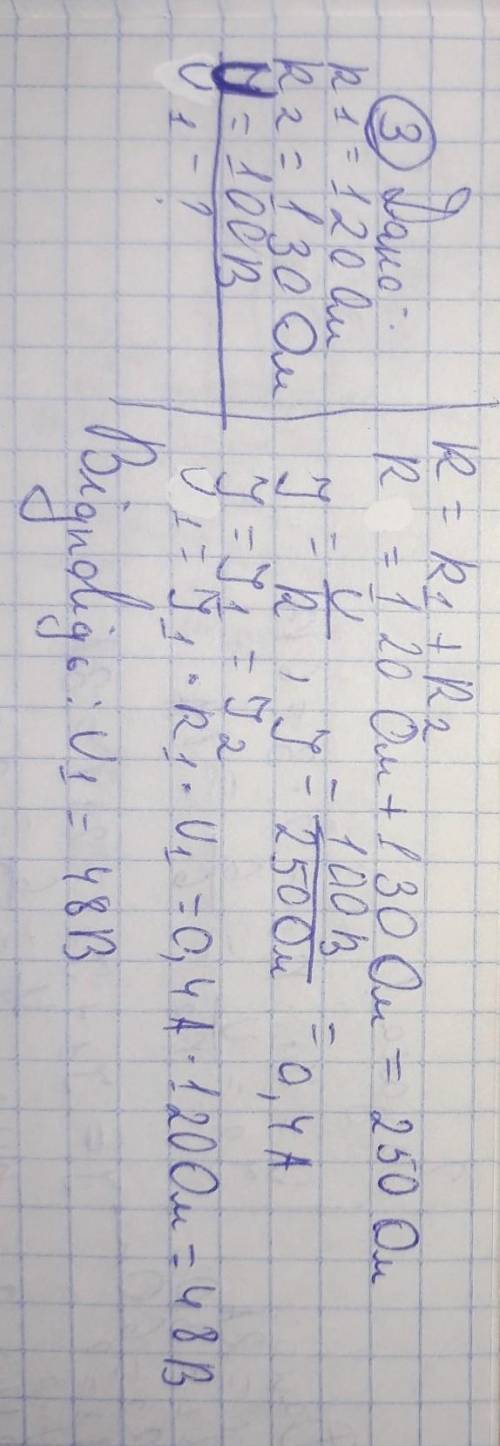 ③ Дано:
R1 = 120 Ом
R2 = 130 Ом
U = 100В
U1 - ?
R = R1 + R2
R = 120 Ом + 130 Ом = 250 Ом
У = U/R, У = 100В/250 Ом = 0,4А
У = У1 = У2
U1 = У1 · R1 · U1 = 0,4А · 120 Ом = 48В
Відповідь: U1 = 48В